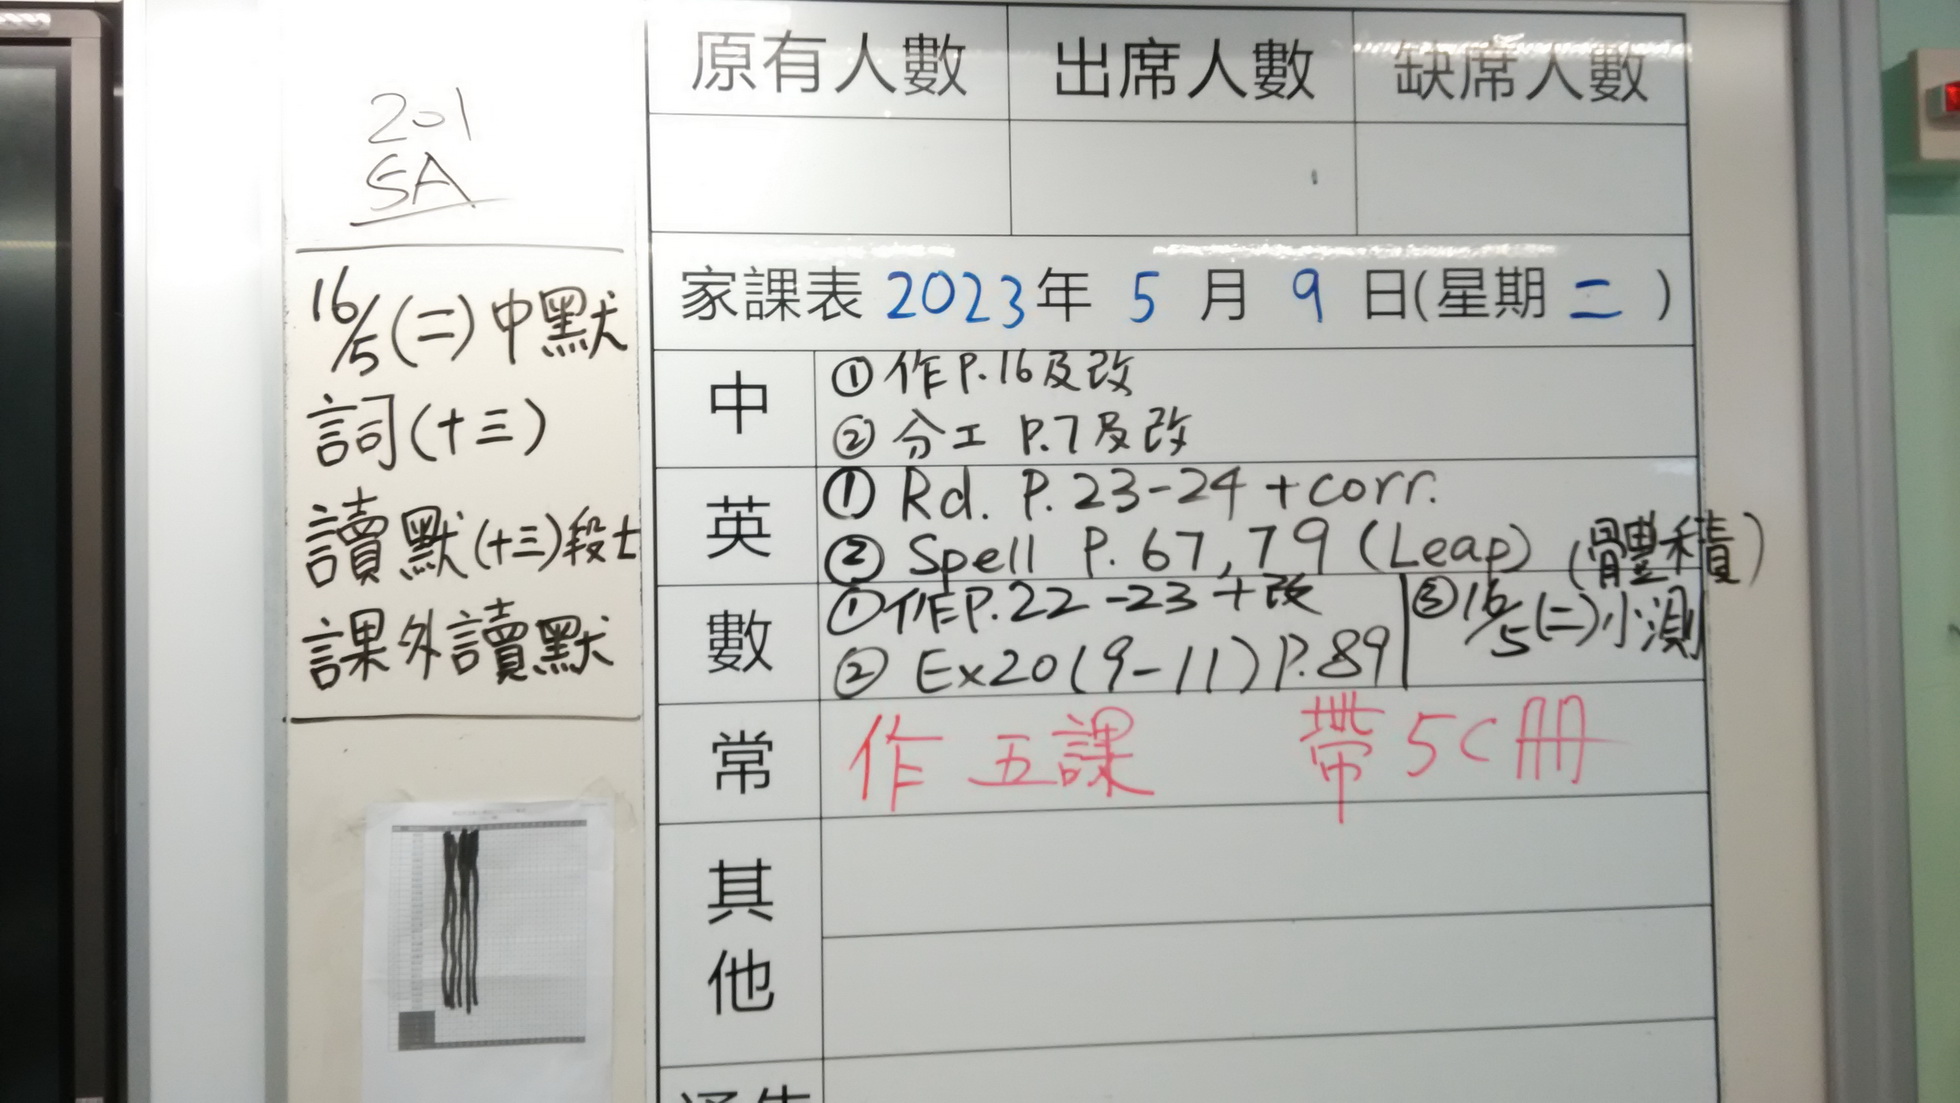 201
5A
16/5(二)中默
詞(十三)
讀默(十三)段七
課外讀默
原有人數 出席人數 缺席人數
家課表 2023年 5 月 9 日(星期二)
中
①作P.16及改
②分工 P.7及改
英
①Rd. P.23-24+corr.
②Spell P.67,79(Leap)
數
①作P.22-23+改
②Ex20(9-11)P.89
(體積)
③16/5(二)小測
常
作五課 帶5C冊
其他